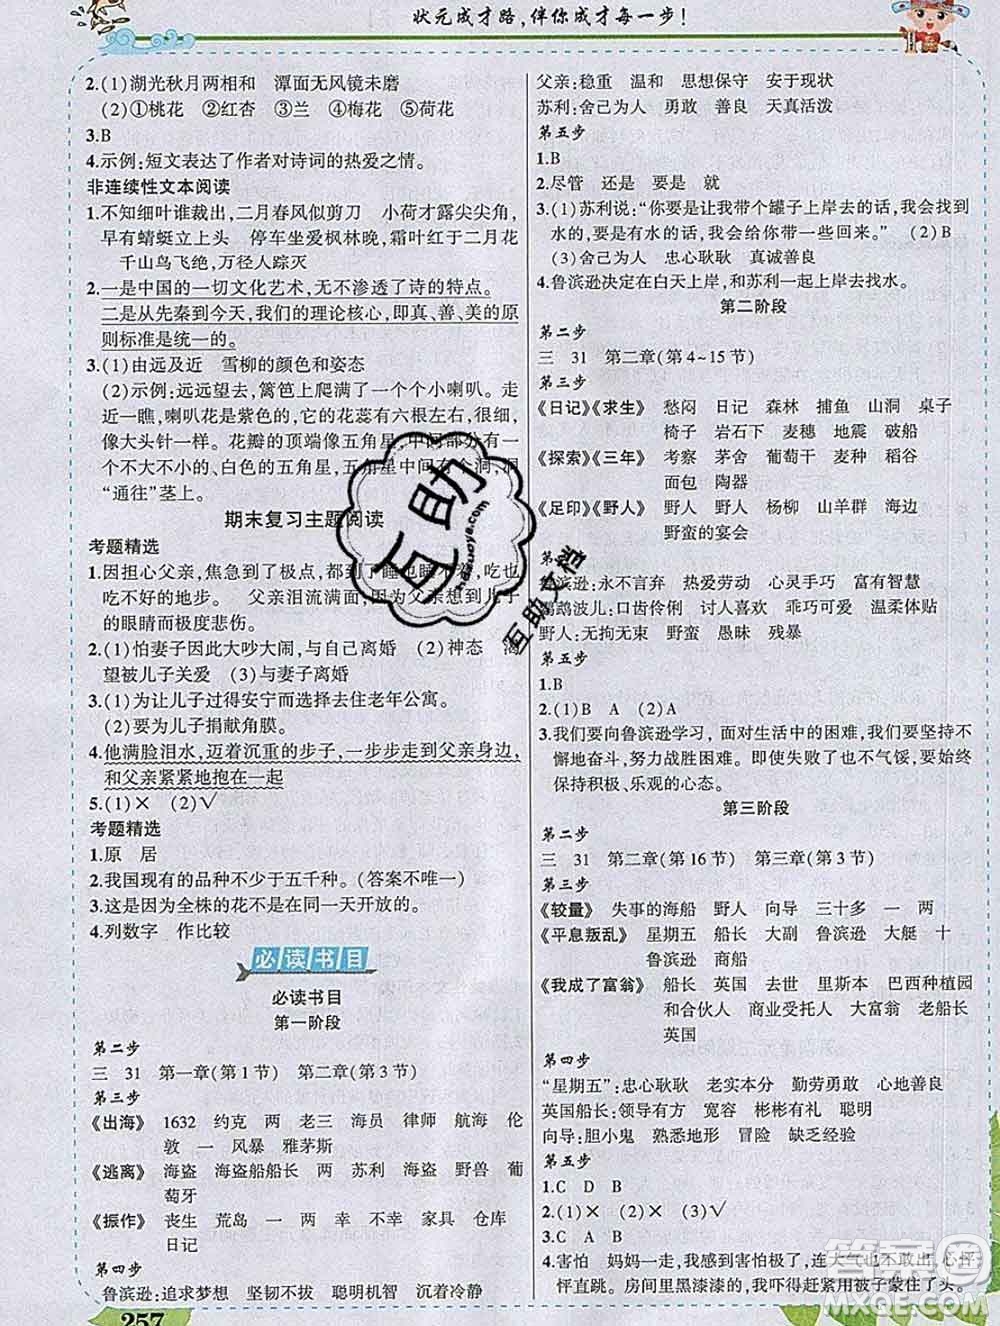 状元成才路,伴你成才每一步!
2.(1)湖光秋月两相和 潭面无风镜未磨
(2)①桃花 ②红杏 ③兰 ④梅花 ⑤荷花
3.B
4.示例:短文表达了作者对诗词的热爱之情。
非连续性文本阅读
1.不知细叶谁裁出,二月春风似剪刀 小荷才露尖尖角,
早有蜻蜓立上头 停车坐爱枫林晚,霜叶红于二月花
千山鸟飞绝,万径人踪灭
2.一是中国的一切文化艺术,无不渗透了诗的特点。
二是从先秦到今天,我们的理论核心,即真、善、美的原
则标准是统一的。
3.(1)由远及近 雪柳的颜色和姿态
(2)示例:远远望去,篱笆上爬满了一个个小喇叭。走
近一瞧,喇叭花是紫色的。它的花蕊有六根,细细的,
像大头针一样。花瓣的顶端像五角星,中间部分有一
个不大不小的、白色的五角星,五角星中间有个洞,洞
“通往”茎上。
期末复习主题阅读
考题精选
1.因担心父亲,焦急到了极点,都到了睡也睡不着,吃也
吃不好的地步。 父亲泪流满面,体现父亲看到儿子
的眼睛而极度悲伤。
2.(1)怕妻子因此大吵大闹,与自己离婚 (2)神态 渴
望被儿子关爱 (3)与妻子离婚
3.(1)为让儿子过得安宁而选择去住老年公寓。
(2)要为儿子捐献角膜。
4.他满脸泪水,迈着沉重的步子,一步步走到父亲身边,
和父亲紧紧地抱在一起
5.(1)× (2)√
考题精选
1.原 居
2.我国现有的品种不少于五千种。(答案不唯一)
3.这是因为全株的花不是在同一天开放的。
4.列数字 作比较
必读书目
必读书目
第一阶段
第二步
三 31 第一章(第1节) 第二章(第3节)
第三步
《出海》 1632 约克 两 老三 海员 律师 航海 伦
敦 一 风暴 雅茅斯
《逃离》 海盗 海盗船船长 两 苏利 海盗 野兽 葡
萄牙
《振作》 丧生 荒岛 一 两 幸 不幸 家具 仓库
日记
第四步
鲁滨逊:追求梦想 坚韧不拔 聪明机智 沉着冷静
257
父亲:稳重 温和 思想保守 安于现状
苏利:舍己为人 勇敢 善良 天真活泼
第五步
1.B
2.尽管 还是 要是 就
3.(1)苏利说:“你要是让我带个罐子上岸去的话,我会找到
水的,要是有水的话,我会给你带一些回来。” (2)B
(3)舍己为人 忠心耿耿 真诚善良
4.鲁滨逊决定在白天上岸,和苏利一起上岸去找水。
第二阶段
第二步
三 31 第二章(第4~15节)
第三步
《日记》《求生》 愁闷 日记 森林 捕鱼 山洞 桌子
椅子 岩石下 麦穗 地震 破船
《探索》《三年》 考察 茅舍 葡萄干 麦种 稻谷
面包 陶器
《足印》《野人》 野人 野人 杨柳 山羊群 海边
野蛮的宴会
鲁滨逊:永不言弃 热爱劳动 心灵手巧 富有智慧
鹦鹉波儿:口齿伶俐 讨人喜欢 乖巧可爱 温柔体贴
野人:无拘无束 野蛮 愚昧 残暴
第五步
1.B
2.(1)B A (2)A
3.我们要向鲁滨逊学习,面对生活中的困难,我们要坚持不
懈地奋斗,努力战胜困难。即使失败了也不气馁,要始终
保持积极、乐观的心态。
第三阶段
第二步
三 31 第二章(第16节) 第三章(第3节)
第三步
《较量》 失事的海船 野人 向导 三十多 一 两
《平息叛乱》 星期五 船长 大副 鲁滨逊 大艇 十
鲁滨逊 商船
《我成了富翁》 船长 英国 去世 里斯本 巴西种植园
和合伙人 商业受托人 大富翁 老船长
英国
第四步
“星期五”:忠心耿耿 老实本分 勤劳勇敢 心地善良
英国船长:领导有方 宽容 彬彬有礼 聪明
向导:胆小鬼 熟悉地形 冒险 缺乏经验
第五步
1.C D B
2.(1)× (2)× (3)√
3.C A B
4.害怕 妈妈一走,我感到害怕极了,连大气也不敢出,心怦
怦直跳。房间里黑漆漆的,我吓得赶紧用被子蒙住了头。
互助
hdzuoye.com
互助文档
答案圈